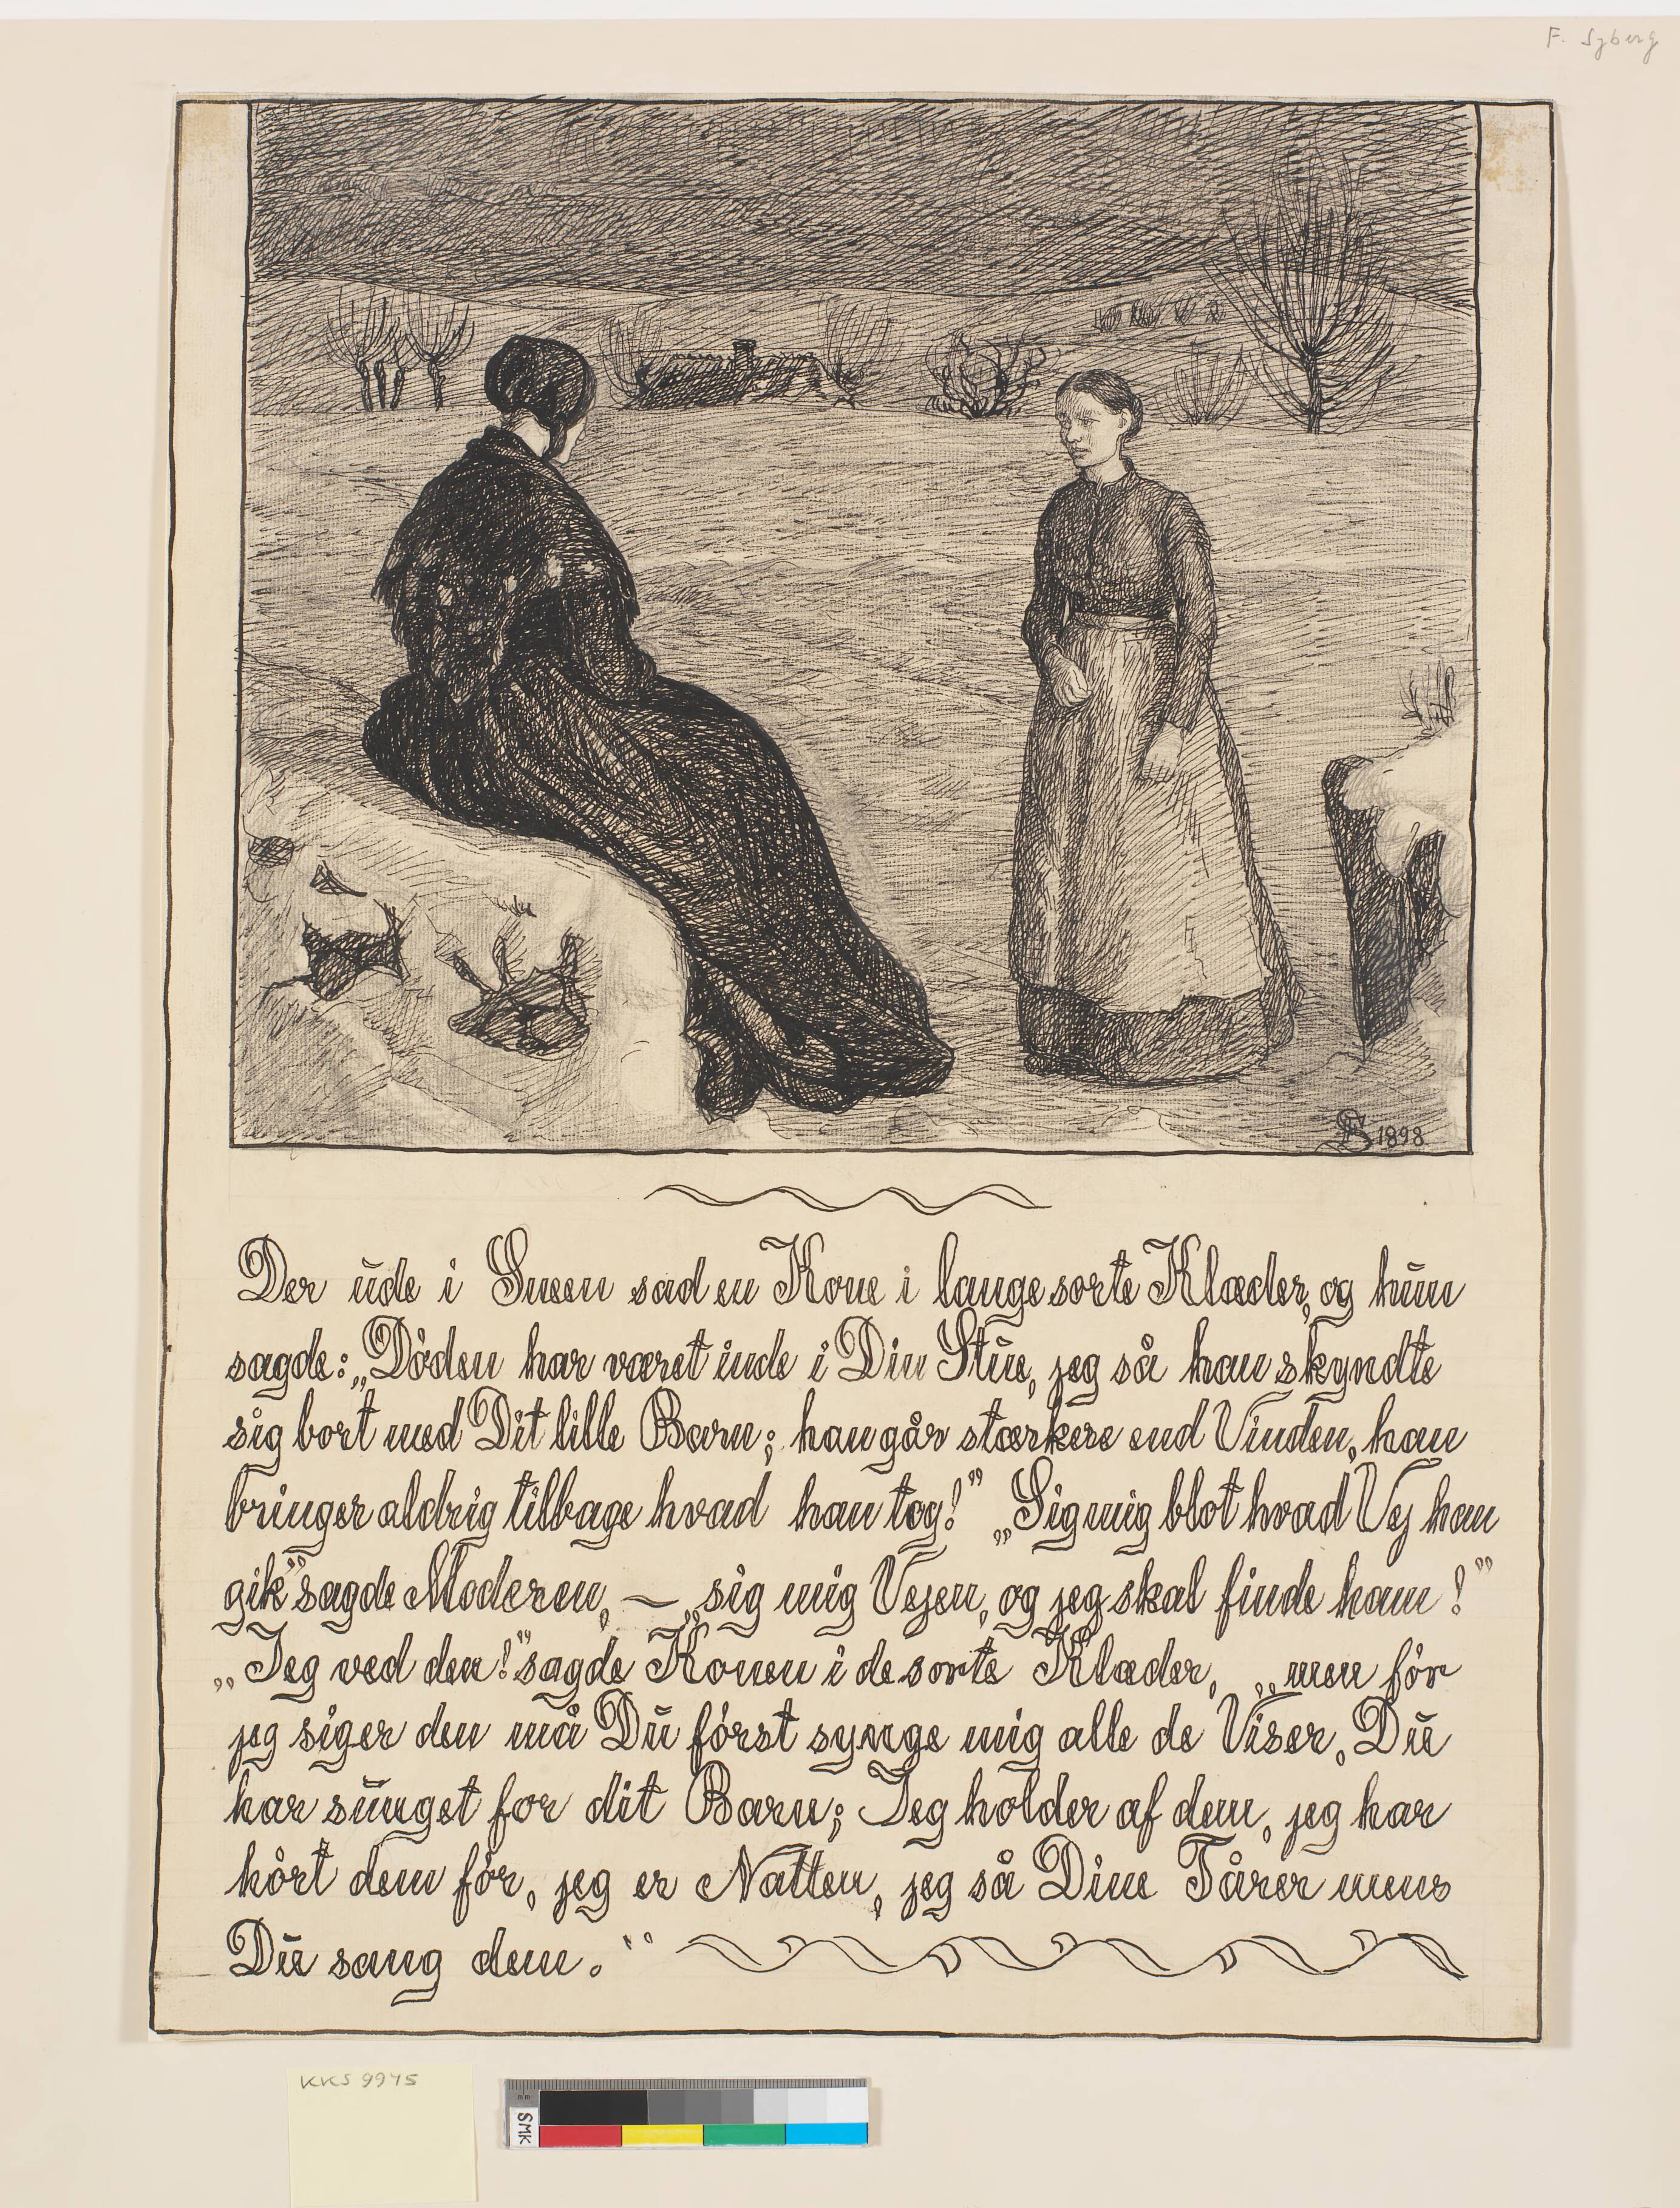 F. Syberg
FS 1898
Der ude i Sneen sad en Kone i lange sorte Klæder, og hun
sagde: „Døden har været inde i Din Stue, jeg så han skyndte
sig bort med Dit lille Barn; han går stærkere end Vinden, han
bringer aldrig tilbage hvad han tog!” „Sig mig blot hvad Vej han
gik” sagde Moderen, — „sig mig Vejen, og jeg skal finde ham!”
„Jeg ved den!” sagde Konen i de sorte Klæder, „men før
jeg siger den må Du først synge mig alle de Viser, Du
har sunget for dit Barn; Jeg holder af dem, jeg har
hørt dem før, jeg er Natten, jeg så Dine Tårer mens
Du sang dem.“
KKS 9945
mm
SMK